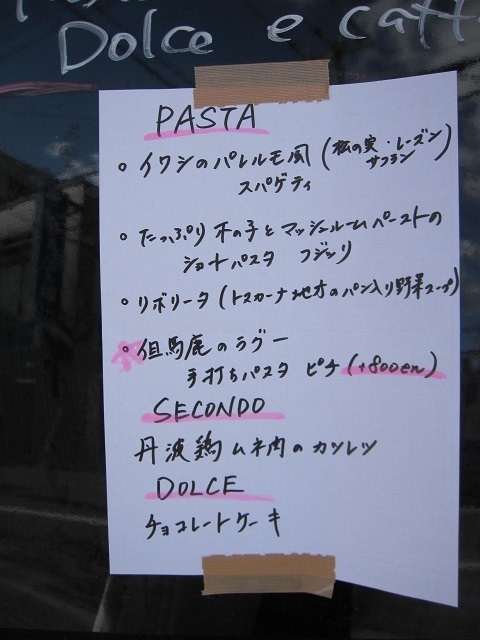 Dolce e caff
PASTA
。イワシのパレルモ風(松の実・レーズン
サフラン)
スパゲティ
。たっぷり木の子とマッシュルームペーストの
ショートパスタ フジッリ
。リボリータ(トスカーナ地方のパン入り野菜スープ)
。但馬鹿のラグー
手打ちパスタ ピチ(+800en)
SECONDO
丹波鶏ムネ肉のカツレツ
DOLCE
チョコレートケーキ